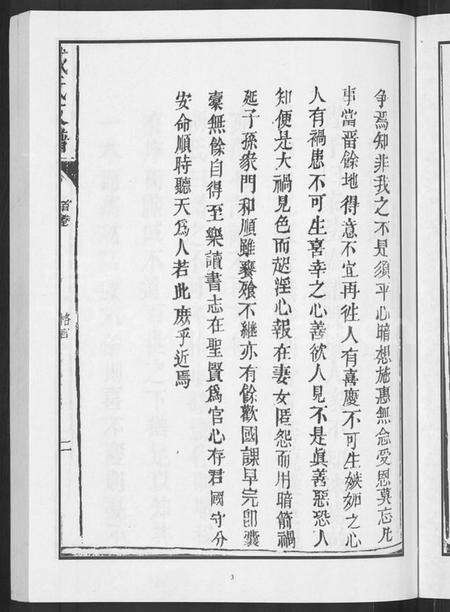 争焉知非我之不是須平心暗想施惠無念受恩莫忘凡
事當畱餘地得意不宜再徃人有喜慶不可生嫉妬之心
人有禍患不可生喜幸之心善欲人見不是眞善惡恐人
知便是大禍見色而起淫心報在妻女匿怨而用暗箭禍
延子孫家門和順雖饔飧不継亦有餘歡國課早完卽囊
橐無餘自得至樂讀書志在聖賢爲官心存君國守分
安命順時聽天爲人若此庶乎近焉
氏支譜
首卷
格言
二
3